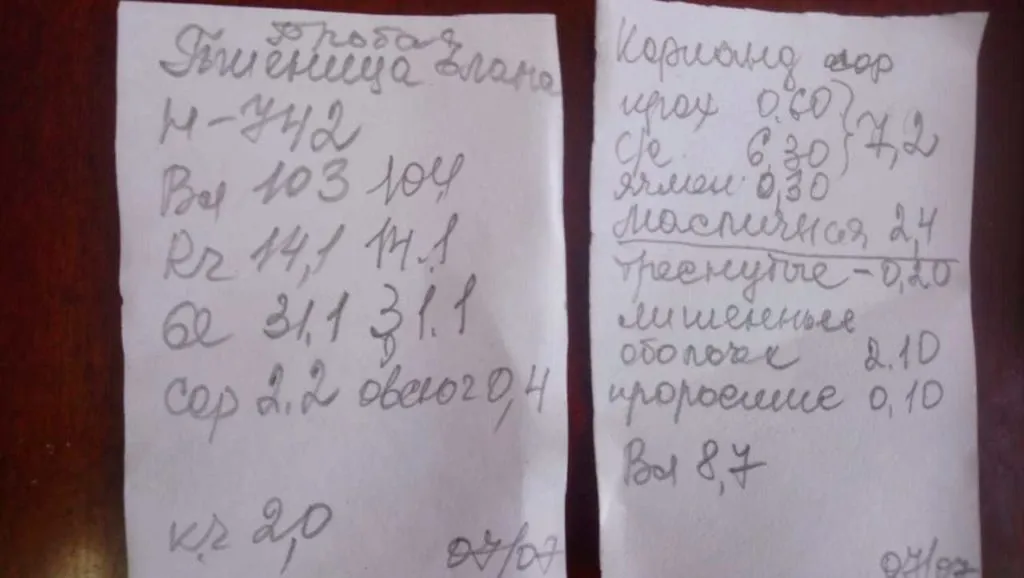 Пшеница Злата
Н-742
Вл 103 104
14,1 14.1
31,1 31.1
Сор 2.2 овсюг 0,4
к.ч 2,0
07/07
Корианд сор
0,60 } 7,2
с/р. 6,30
ячмен. 0,30
масличная 2,4
треснутые - 0,20
лишенные
оболочек 2.10
проросшие 0,10
Вл 8,7
07/07